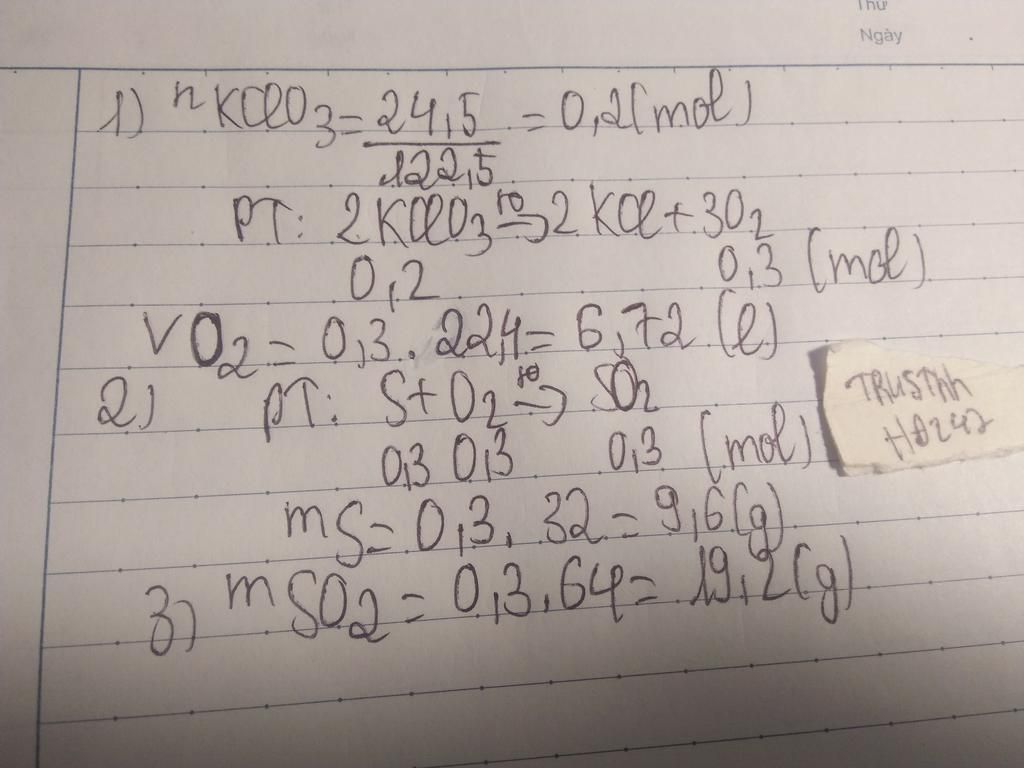 Thứ
Ngày
1) nKClO3 = 24,5 / 122,5 = 0,2 (mol)
PT: 2KClO3 t° → 2KCl + 3O2
0,2 0,3 (mol)
VO2 = 0,3 . 22,4 = 6,72 (l)
2) PT: S + O2 t° → SO2
0,3 0,3 0,3 (mol)
mS = 0,3 . 32 = 9,6 (g)
3) mSO2 = 0,3 . 64 = 19,2 (g)